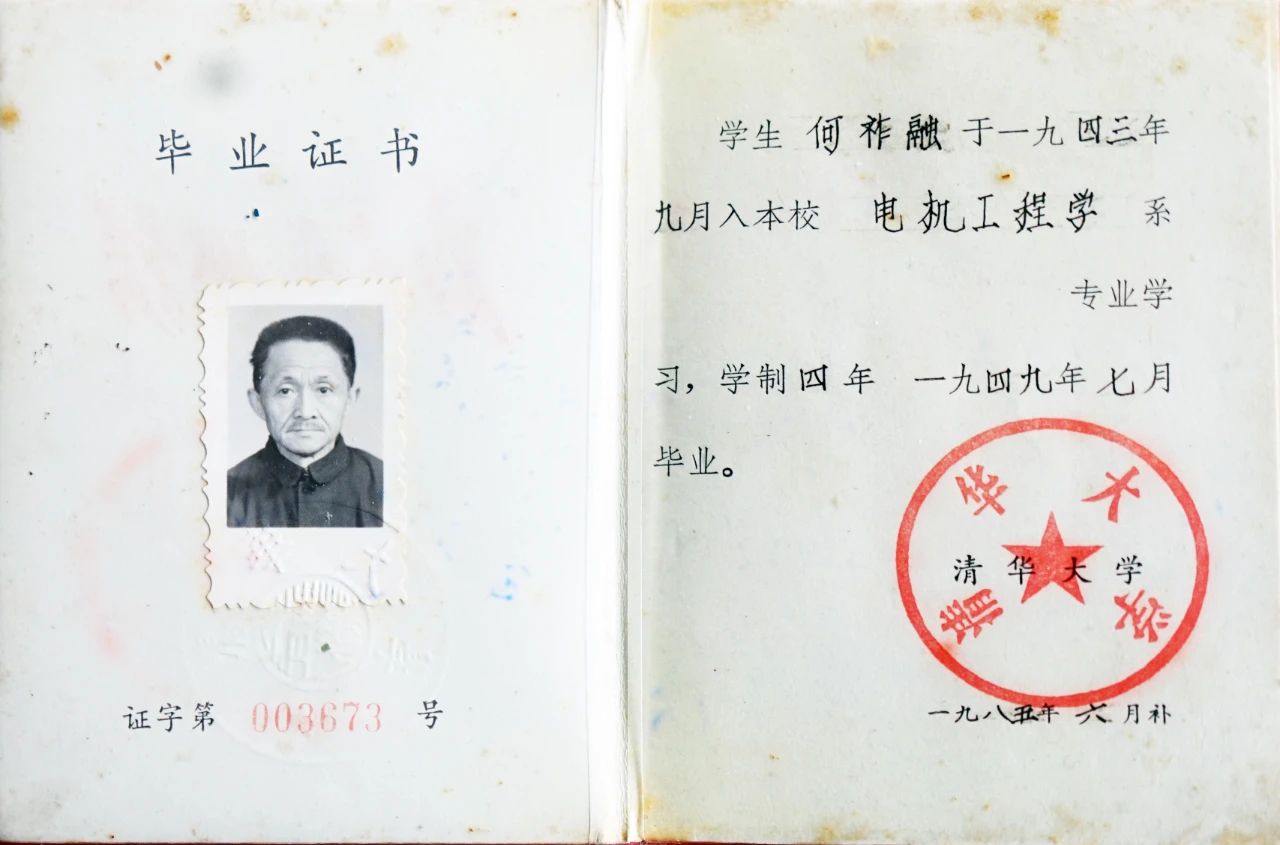 毕业证书
证字第 003673 号
学生 何祚融 于一九四三年
九月入本校 电机工程学 系
专业学
习，学制四年 一九四九年七月
毕业。
清华大学
清华大学
一九八五年 六月补